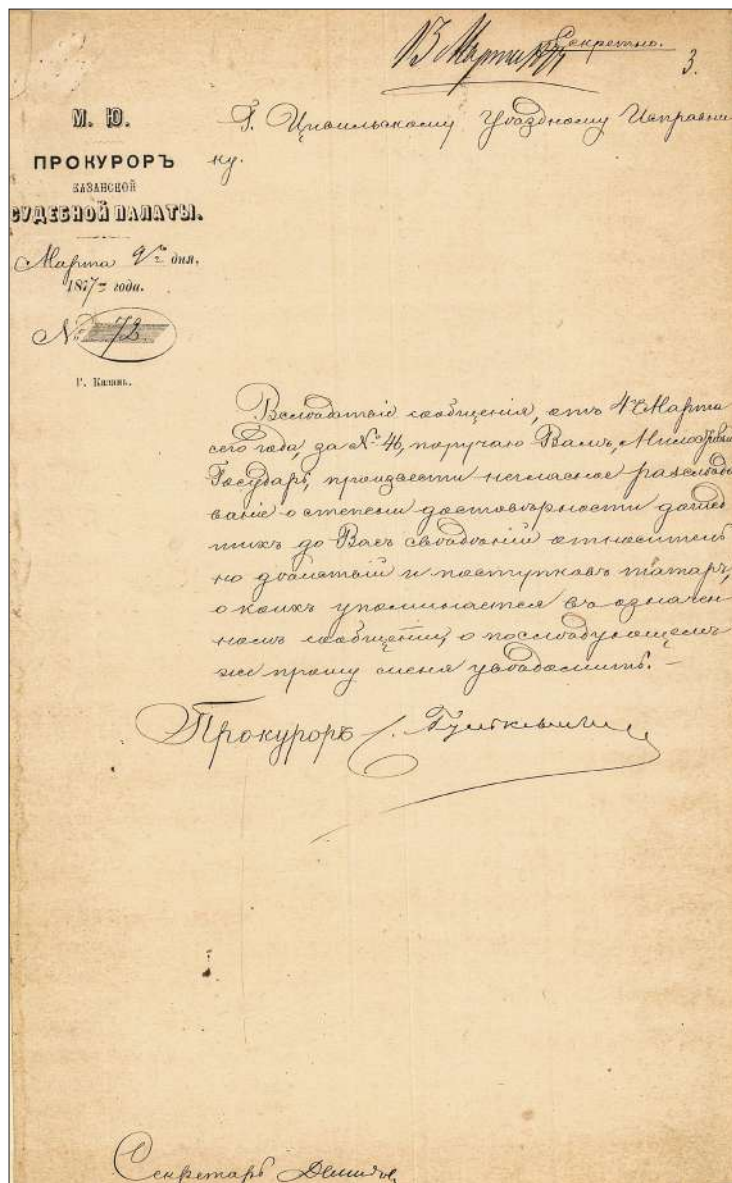 13 Марта
Секретно.
3.
М. Ю.
ПРОКУРОРЪ
КАЗАНСКОЙ
СУДЕБНОЙ ПАЛАТЫ.
Марта 9го дня.
1877 года.
№ 72
Г. Казань.
Г. Цивильскому Уѣздному Исправни
ку.
Вслѣдствіе сообщенія, отъ 4го Марта
сего года, за № 46, поручаю Вамъ, Милостивый
Государь, произвести негласное разслѣдо
ваніе о степени достовѣрности дошед
шихъ до Васъ свѣдѣній относитель
но дѣйствій и поступковъ татаръ,
о коихъ упоминается въ означен
номъ сообщеніи, о послѣдующемъ
же прошу меня увѣдомить. —
Прокуроръ С.
Секретарь